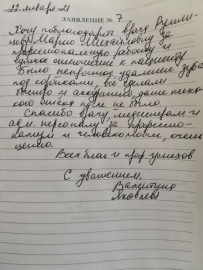 22 января 21
ЗАЯВЛЕНИЕ № 7
Хочу поблагодарить врача
Марию Михайловну за
профессиональную работу и
чуткое отношение к пациенту
Было непросто удалить зуб
под коронками, всё сделали
и аккуратно, даже
отёка после не было.
Спасибо врачу, медсестрам и
адм. персоналу за професси-
и человеческое, очень
ценно.
Всех благ и проф. успехов
С уважением,
Валентина